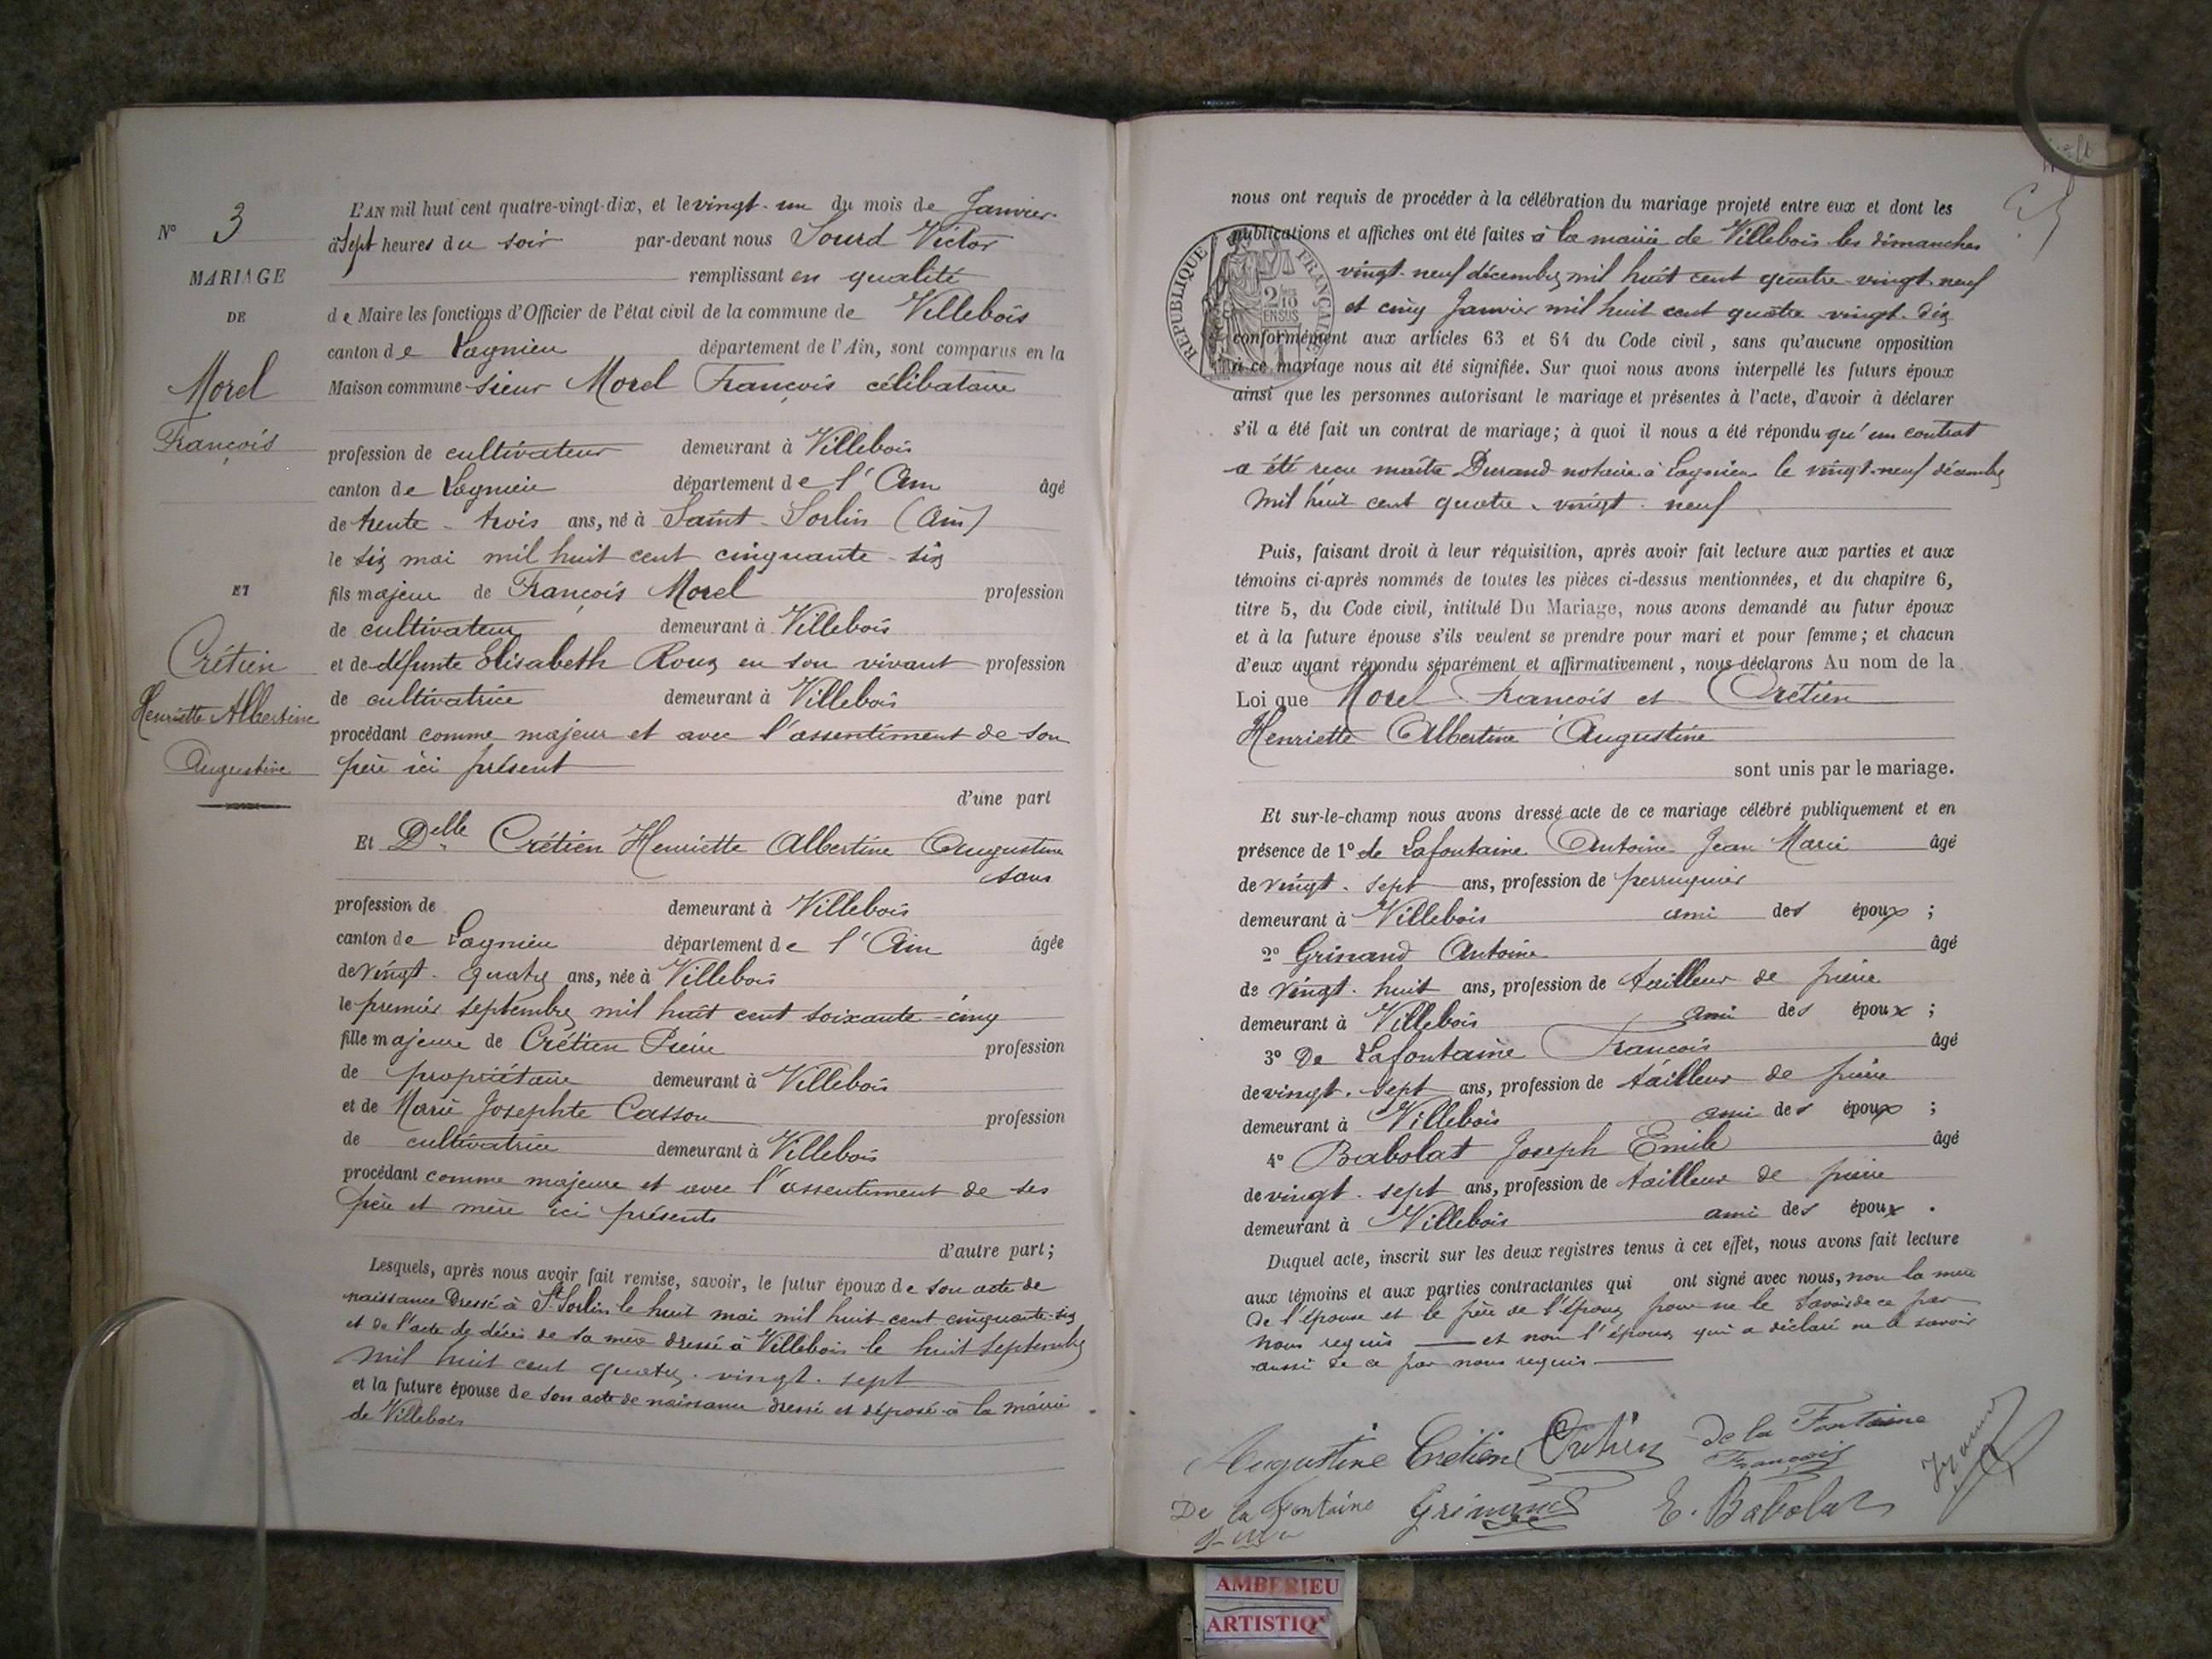 N° 3
MARIAGE
DE
Morel
François
ET
Crétien
Henriette Albertine
Augustine
L'AN mil huit cent quatre-vingt-dix, et le vingt-un du mois de Janvier
à Sept heures du soir par-devant nous Sourd Victor
remplissant en qualité
de Maire les fonctions d'Officier de l'état civil de la commune de Villebois
canton de Lagnieu département de l'Ain, sont comparus en la
Maison commune sieur Morel François célibataire
profession de cultivateur demeurant à Villebois
canton de Lagnieu département de l'Ain âgé
de trente-trois ans, né à Saint-Sorlin (Ain)
le six mai mil huit cent cinquante-six
fils majeur de François Morel profession
de cultivateur demeurant à Villebois
et de défunte Elisabeth Roux en son vivant profession
de cultivatrice demeurant à Villebois
procédant comme majeur et avec l'assentiment de son
père ici présent
d'une part
Et Delle Crétien Henriette Albertine Augustine
sans
profession de demeurant à Villebois
canton de Lagnieu département de l'Ain âgée
de vingt-quatre ans, née à Villebois
le premier septembre mil huit cent soixante-cinq
fille majeure de Crétien Pierre profession
de propriétaire demeurant à Villebois
et de Marie Josephte Casson profession
de cultivatrice demeurant à Villebois
procédant comme majeure et avec l'assentiment de ses
père et mère ici présents
d'autre part;
Lesquels, après nous avoir fait remise, savoir, le futur époux de son acte de
naissance dressé à St Sorlin le huit mai mil huit cent cinquante-six
et de l'acte de décès de sa mère dressé à Villebois le huit Septembre
mil huit cent quatre-vingt-sept
et la future épouse de son acte de naissance dressé et déposé à la mairie
de Villebois
nous ont requis de procéder à la célébration du mariage projeté entre eux et dont les
publications et affiches ont été faites à la mairie de Villebois les dimanches
vingt-neuf décembre mil huit cent quatre-vingt-neuf
et cinq Janvier mil huit cent quatre-vingt-dix
RÉPUBLIQUE FRANÇAISE
2/10 EN SUS
conformément aux articles 63 et 64 du Code civil, sans qu'aucune opposition
à ce mariage nous ait été signifiée. Sur quoi nous avons interpellé les futurs époux
ainsi que les personnes autorisant le mariage et présentes à l'acte, d'avoir à déclarer
s'il a été fait un contrat de mariage; à quoi il nous a été répondu qu'un contrat
a été reçu maître Durand notaire à Lagnieu le vingt-neuf décembre
mil huit cent quatre-vingt-neuf
Puis, faisant droit à leur réquisition, après avoir fait lecture aux parties et aux
témoins ci-après nommés de toutes les pièces ci-dessus mentionnées, et du chapitre 6,
titre 5, du Code civil, intitulé Du Mariage, nous avons demandé au futur époux
et à la future épouse s'ils veulent se prendre pour mari et pour femme; et chacun
d'eux ayant répondu séparément et affirmativement, nous déclarons Au nom de la
Loi que Morel François et Crétien
Henriette Albertine Augustine
sont unis par le mariage.
Et sur-le-champ nous avons dressé acte de ce mariage célébré publiquement et en
présence de 1° de Lafontaine Antoine Jean Marie âgé
de vingt-sept ans, profession de perruquier
demeurant à Villebois ami des époux;
2° Grinand Antoine âgé
de vingt-huit ans, profession de tailleur de pierre
demeurant à Villebois ami des époux;
3° De Lafontaine François âgé
de vingt-sept ans, profession de tailleur de pierre
demeurant à Villebois ami des époux;
4° Babolat Joseph Emile âgé
de vingt-sept ans, profession de tailleur de pierre
demeurant à Villebois ami des époux.
Duquel acte, inscrit sur les deux registres tenus à cet effet, nous avons fait lecture
aux témoins et aux parties contractantes qui ont signé avec nous, non la mère
de l'épouse et le père de l'époux pour ne le savoir de ce par
nous requis et non l'époux qui a déclaré ne le savoir
aussi de ce par nous requis
Augustine Crétien Crétien De la Fontaine
François
De la Fontaine Grinand E. Babolat
AMBERIEU
ARTISTIQ